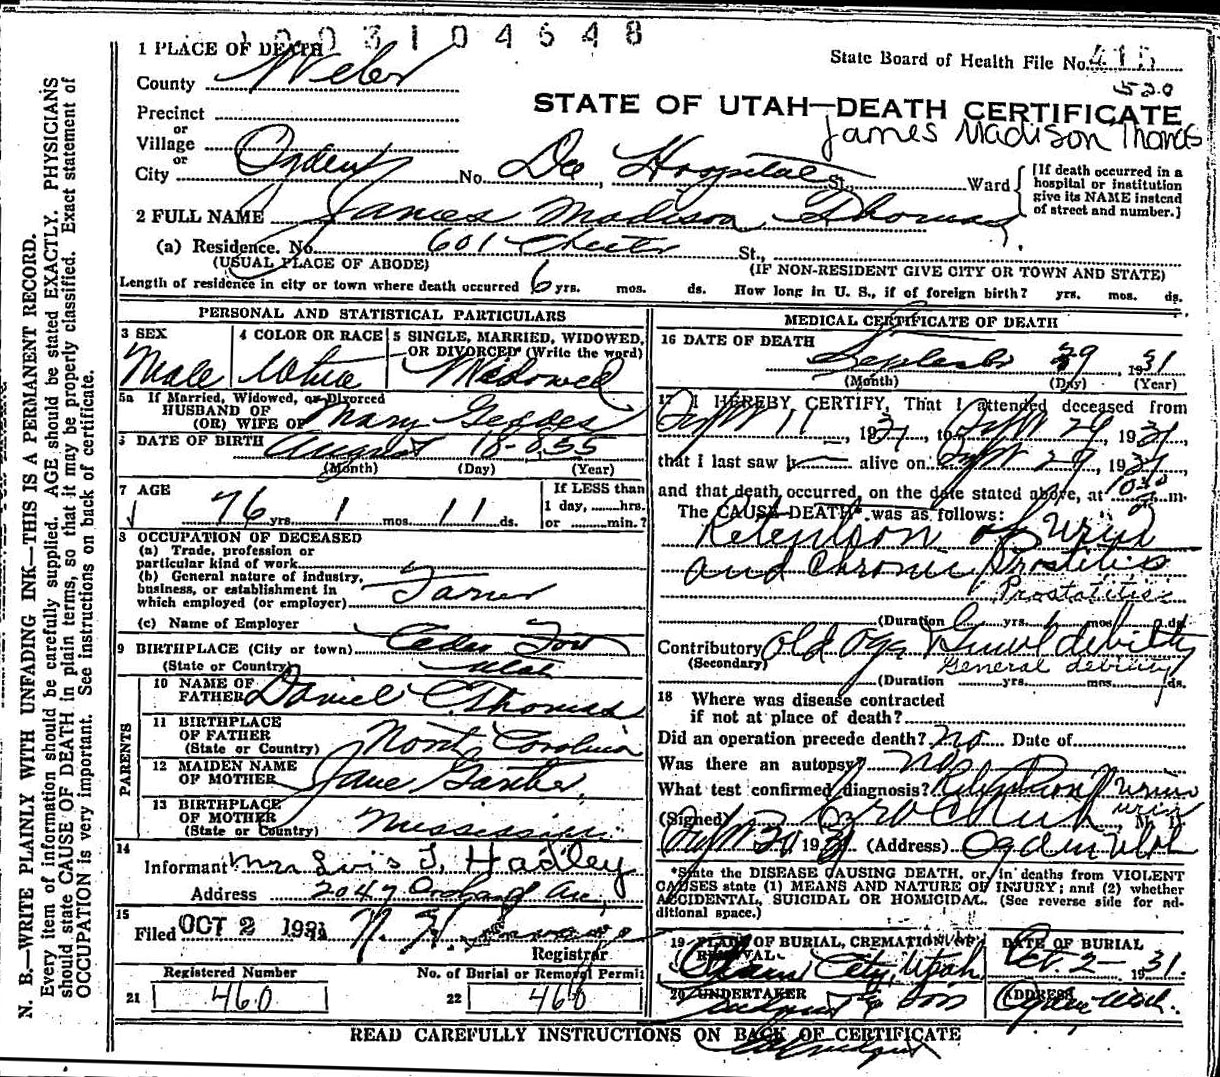 1003104548
1 PLACE OF DEATH
County Weber
State Board of Health File No. 415
520
Precinct
or
Village
or
City Ogden No. Dee Hospital St. Ward
STATE OF UTAH—DEATH CERTIFICATE
James Madison Thomas
[If death occurred in a
hospital or institution
give its NAME instead
of street and number.]
2 FULL NAME James Madison Thomas
(a) Residence. No. 601 Chester St.,
(USUAL PLACE OF ABODE) (IF NON-RESIDENT GIVE CITY OR TOWN AND STATE)
Length of residence in city or town where death occurred 6 yrs. mos. ds. How long in U. S., if of foreign birth? yrs. mos. ds.
PERSONAL AND STATISTICAL PARTICULARS
3 SEX
Male
4 COLOR OR RACE
White
5 SINGLE, MARRIED, WIDOWED,
OR DIVORCED (Write the word)
Widowed
5a If Married, Widowed, or Divorced
HUSBAND OF
(OR) WIFE OF Mary Geddes
6 DATE OF BIRTH August 18-1855
(Month) (Day) (Year)
7 AGE
76 yrs. 1 mos. 11 ds.
If LESS than
1 day, hrs.
or min.?
8 OCCUPATION OF DECEASED
(a) Trade, profession or
particular kind of work
(b) General nature of industry,
business, or establishment in
which employed (or employer) Farmer
(c) Name of Employer
9 BIRTHPLACE (City or town) Cedar Fort
(State or Country) Utah
PARENTS
10 NAME OF
FATHER Daniel C. Thomas
11 BIRTHPLACE
OF FATHER
(State or Country) North Carolina
12 MAIDEN NAME
OF MOTHER Jane
13 BIRTHPLACE
OF MOTHER
(State or Country) Mississippi
14
Informant Mrs Lois T. Hadley
Address 2047 Orchard Ave,
15
Filed OCT 2 1931
Registrar
Registered Number
21 460
No. of Burial or Removal Permit
22 460
MEDICAL CERTIFICATE OF DEATH
16 DATE OF DEATH
September 29, 1931
(Month) (Day) (Year)
17 I HEREBY CERTIFY, That I attended deceased from
Sept 11, 1931, to Sept 29, 1931
that I last saw h alive on Sept 29, 1931
and that death occurred, on the date stated above, at 1030 m.
The CAUSE DEATH* was as follows:
Retention of Urin
and Chronic Prostitis
Prostatitis
(Duration yrs. mos. ds.
Contributory Old age Genrl debility
(Secondary) General debility
(Duration yrs. mos. ds.
18 Where was disease contracted
if not at place of death?
Did an operation precede death? No Date of
Was there an autopsy? No
What test confirmed diagnosis? Retention Urin
urin
(Signed) M. D.
Sept 30 1931 (Address) Ogden Utah
*State the DISEASE CAUSING DEATH, or, in deaths from VIOLENT
CAUSES state (1) MEANS AND NATURE OF INJURY; and (2) whether
ACCIDENTAL, SUICIDAL OR HOMICIDAL. (See reverse side for ad-
ditional space.)
19 PLACE OF BURIAL, CREMATION OR
REMOVAL
Plain City, Utah
DATE OF BURIAL
Oct. 2- 1931.
20 UNDERTAKER
& Son
ADDRESS
Ogden Utah.
READ CAREFULLY INSTRUCTIONS ON BACK OF CERTIFICATE
N. B.—WRITE PLAINLY WITH UNFADING INK—THIS IS A PERMANENT RECORD.
Every item of information should be carefully supplied. AGE should be stated EXACTLY. PHYSICIANS
should state CAUSE OF DEATH in plain terms, so that it may be properly classified. Exact statement of
OCCUPATION is very important. See instructions on back of certificate.